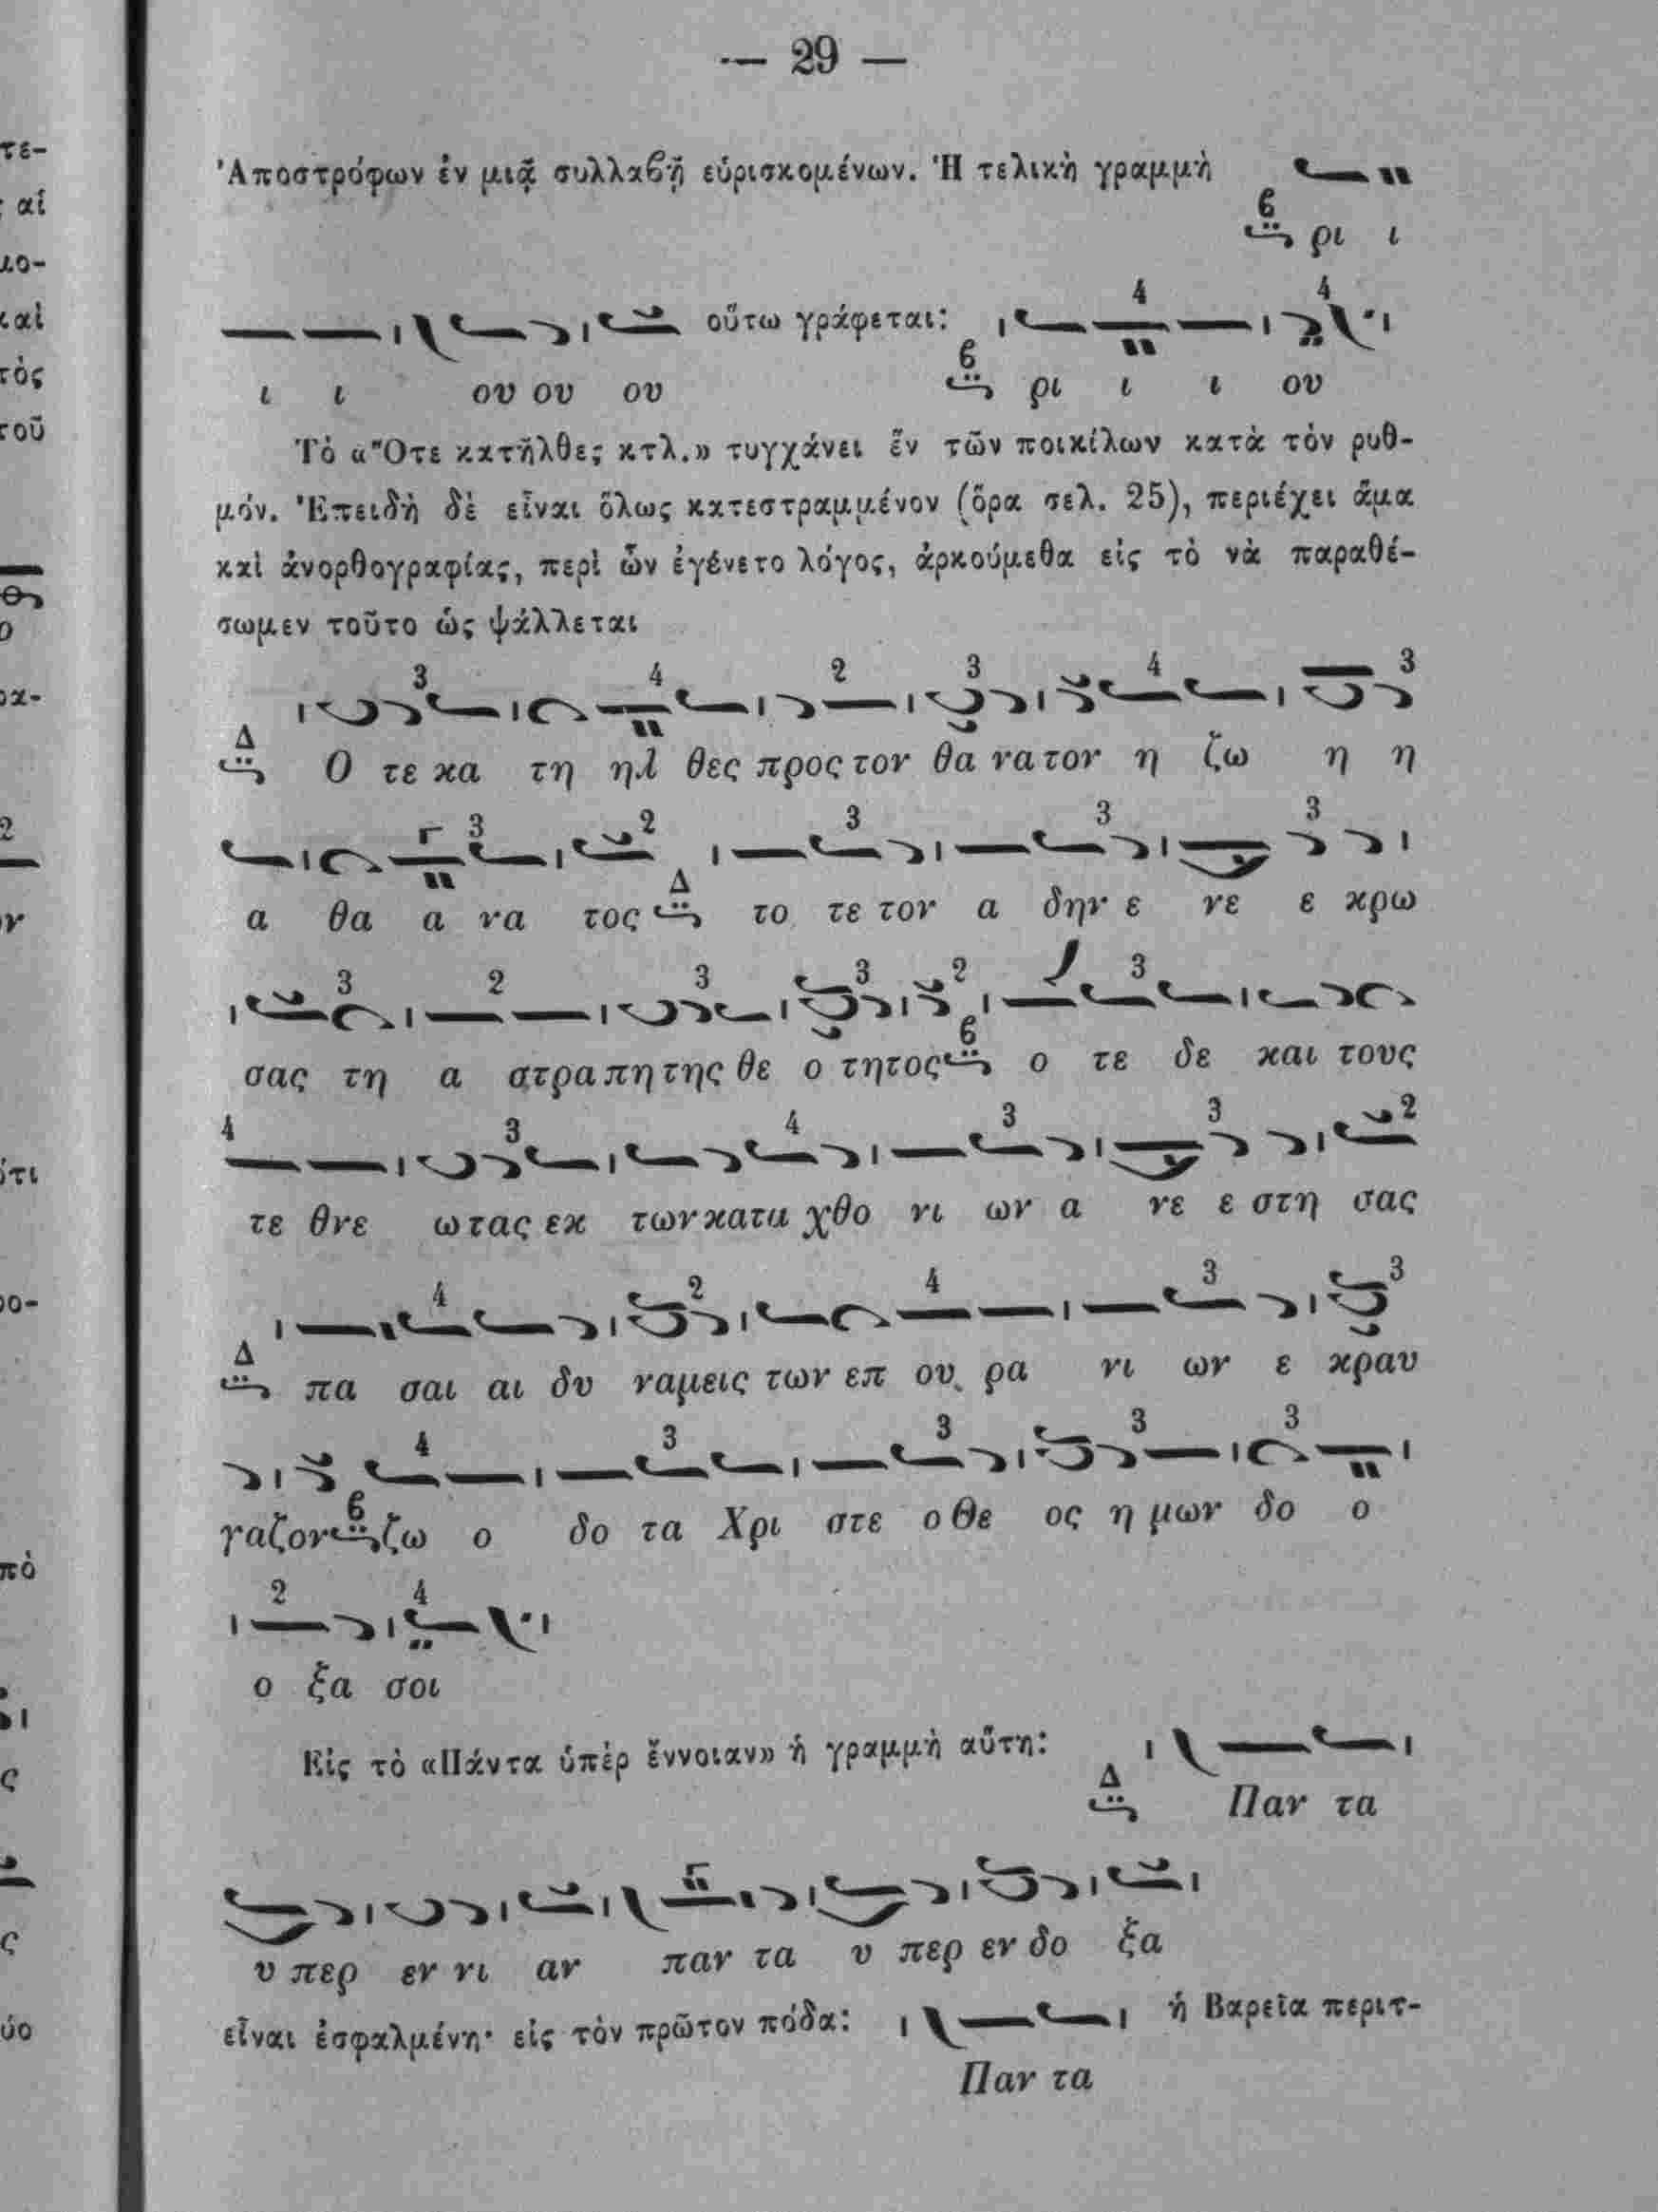 — 29 —
Ἀποστρόφων ἐν μιᾷ συλλαβῇ εὑρισκομένων. Ἡ τελικὴ γραμμὴ
β
ρι ι
4 4
οὕτω γράφεται:
β
ι ι ου ου ου ρι ι ι ου
Τὸ «Ὅτε κατῆλθες κτλ.» τυγχάνει ἓν τῶν ποικίλων κατὰ τὸν ρυθ-
μόν. Ἐπειδὴ δὲ εἶναι ὅλως κατεστραμμένον (ὅρα σελ. 25), περιέχει ἅμα
καὶ ἀνορθογραφίας, περὶ ὧν ἐγένετο λόγος, ἀρκούμεθα εἰς τὸ νὰ παραθέ-
σωμεν τοῦτο ὡς ψάλλεται
3 4 2 3 4 3
Δ
Ο τε κα τη ηλ θες προς τον θα να τον η ζω η η
Γ 3 2 3 3 3
α θα α να τος Δ το τε τον α δην ε νε ε κρω
3 2 3 3 2 3
σας τη α στρα πη της θε ο τητος β ο τε δε και τους
4 3 4 3 3 2
τε θνε ω τας εκ των κατα χθο νι ων α νε ε στη σας
4 2 4 3 3
Δ
πα σαι αι δυ ναμεις των επ ου ρα νι ων ε κραυ
4 3 3 3 3
γαζον β ζω ο δο τα Χρι στε ο Θε ος η μων δο ο
2 4
ο ξα σοι
Εἰς τὸ «Πάντα ὑπὲρ ἔννοιαν» ἡ γραμμὴ αὕτη:
Δ
Παν τα
Γ
υ περ εν νι αν παν τα υ περ εν δο ξα
εἶναι ἐσφαλμένη· εἰς τὸν πρῶτον πόδα: ἡ Βαρεῖα περιτ-
Παν τα